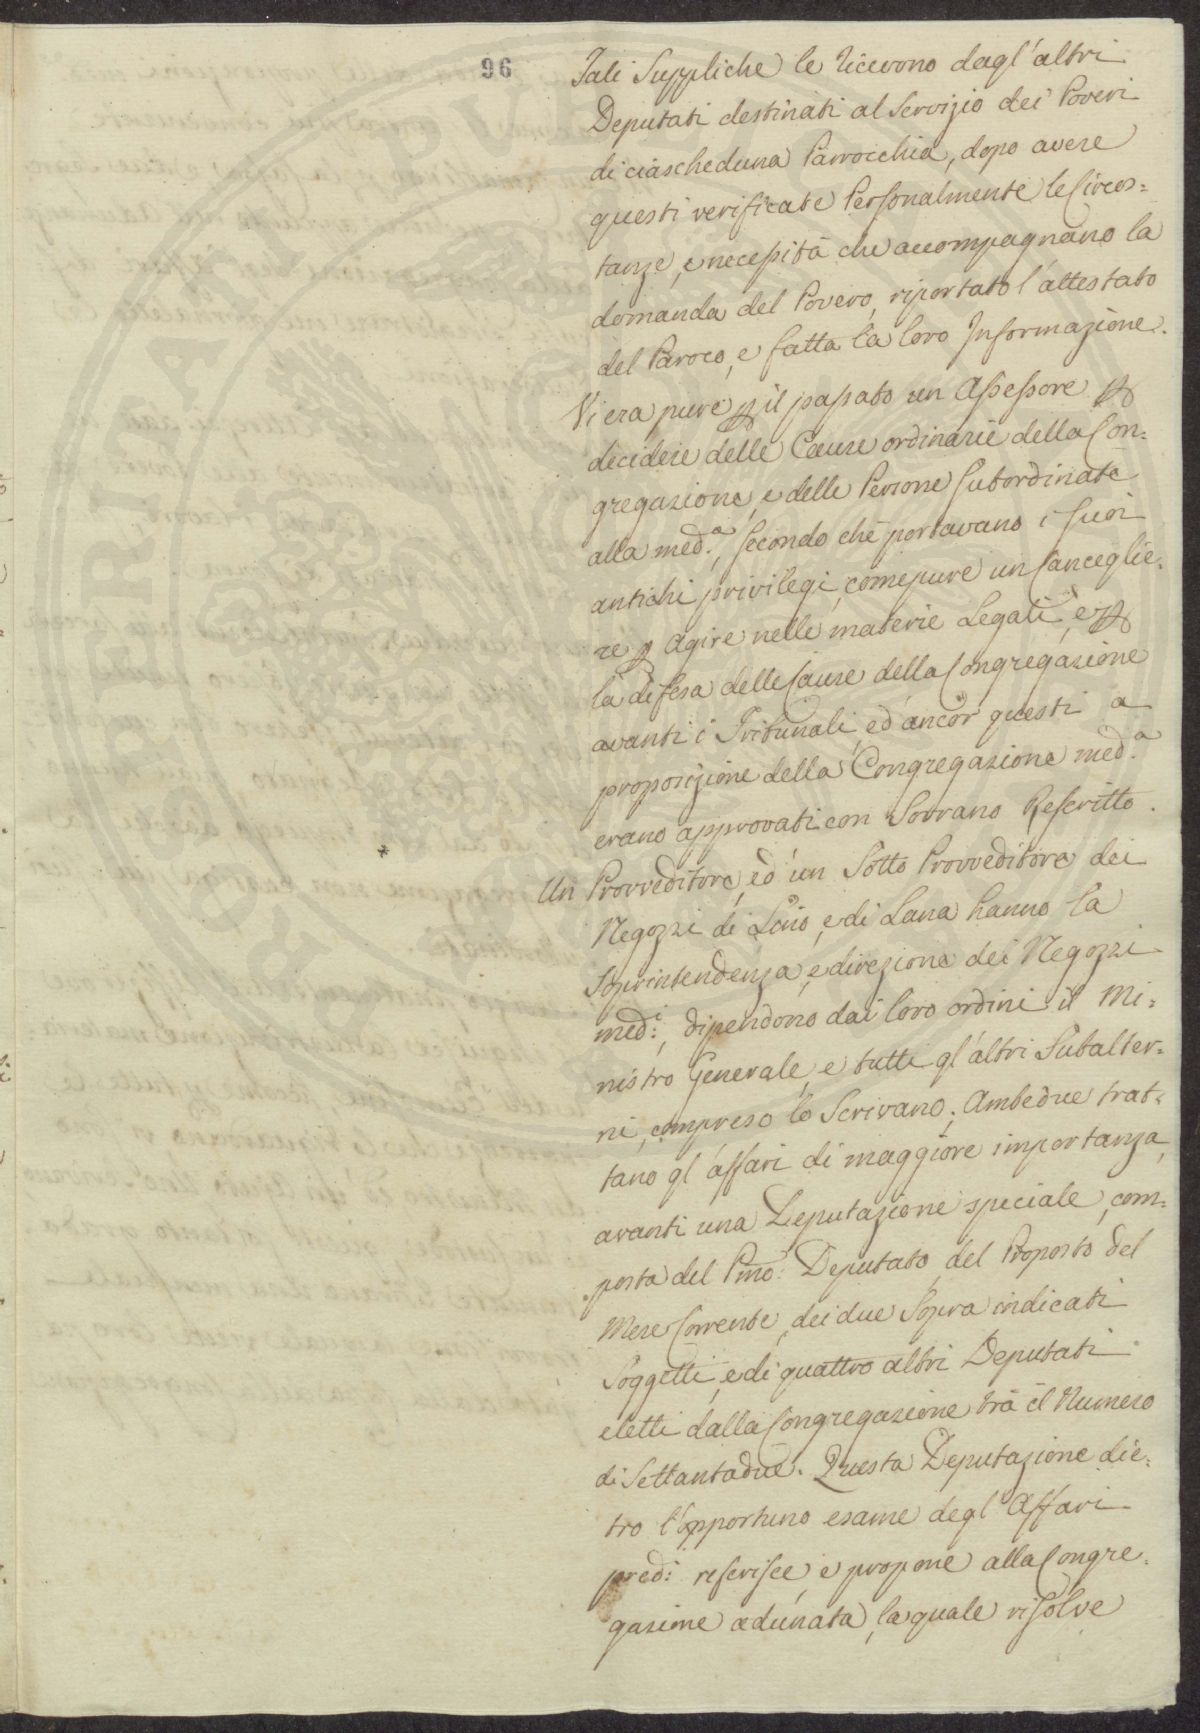 96
Tali Suppliche le ricevono dagl'altri
Deputati destinati al Servizio dei Poveri
di ciascheduna Parrocchia, dopo avere
questi verificate Personalmente le Circos=
tanze, e necessità che accompagnano la
domanda del Povero, riportato l'attestato
del Paroco, e fatta la loro Informazione.
Vi era pure p il passato un Assessore p
decidere delle Cause ordinarie della Con=
gregazione, e delle Persone Subordinate
alla med.a, secondo che portavano i suoi
antichi privilegi, come pure un Canceglie=
re p agire nelle materie Legali, e p
la difesa delle Cause della Congregazione
avanti i Tribunali, ed ancor questi a
proposizione della Congregazione med.a
erano approvati con Sovrano Rescritto.
Un Provveditore, ed un Sotto Provveditore dei
Negozzi di Lino, e di Lana hanno la
Soprintendenza, e direzione dei Negozzi
med:i, dipendono dai loro ordini il Mi=
nistro Generale, e tutti gl'altri Subalter=
ni, compreso lo Scrivano. Ambedue trat=
tano gl'affari di maggiore importanza,
avanti una Deputazione speciale, com=
posta del Pmo: Deputato, del Proposto del
Mese Corrente, dei due Sopra indicati
Soggetti, e di quattro altri Deputati
eletti dalla Congregazione trà il Numero
di Settantadue. Questa Deputazione die=
tro l'opportuno esame degl'Affari
pred:i riferisce, e propone alla Congre=
gazione adunata, la quale risolve